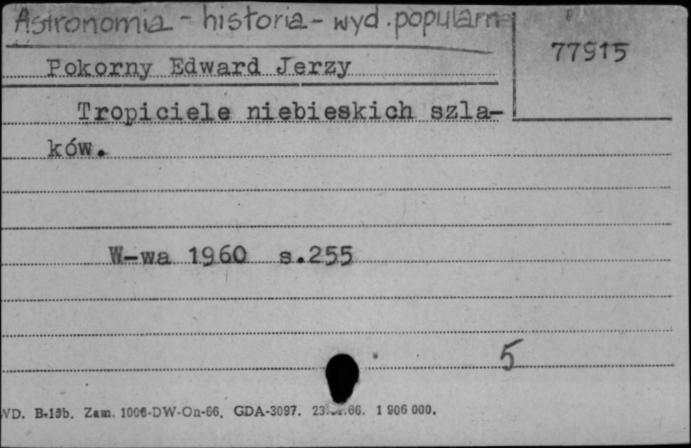 Astronomia - historia - wyd. popularn
77915
Pokorny Edward Jerzy
Tropiciele niebieskich szla-
ków.
W-wa 1960 s.255
5
WD. B-13b. Zam. 1006-DW-On-66. GDA-3097. 66. 1 906 000.